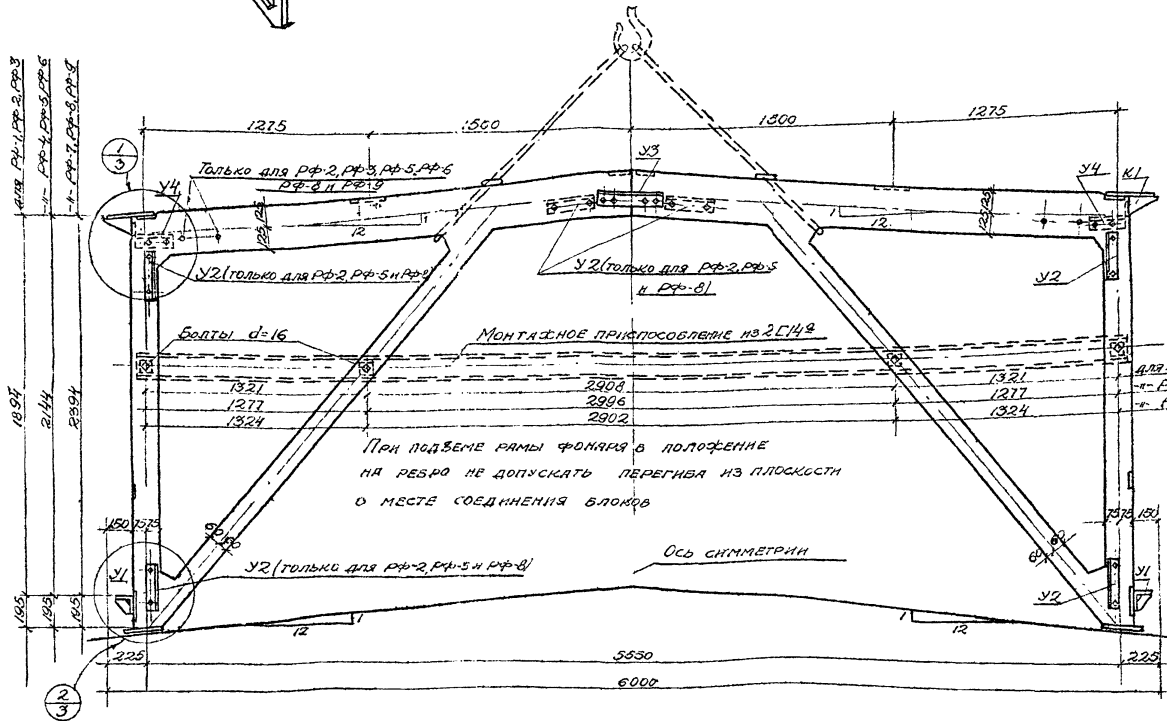 для РФ-1, РФ-2, РФ-3
-"- РФ-4, РФ-5, РФ-6
-"- РФ-7, РФ-8, РФ-9
1275
1500
1500
1275
1
3
У4
Только для РФ-2, РФ-3, РФ-5, РФ-6
РФ-8 и РФ-9
У3
У4
К1
125 125
12
1
1
12
125 125
У2 (только для РФ-2, РФ-5 и РФ-8)
У2 (только для РФ-2, РФ-5
и РФ-8)
У2
Болты d=16
Монтажное приспособление из 2[14а
1321
2908
1321
для
1277
2996
1277
-"- Р
1324
2902
1324
-"-
1894
2144
2394
При подъеме рамы фонаря в положение
на ребро не допускать перегиба из плоскости
в месте соединения блоков
150
75 75
60 60
60 60
75 75
150
У1
У2 (только для РФ-2, РФ-5 и РФ-8)
Ось симметрии
У2
У1
195
195
195
12
1
1
12
225
5550
225
6000
2
3